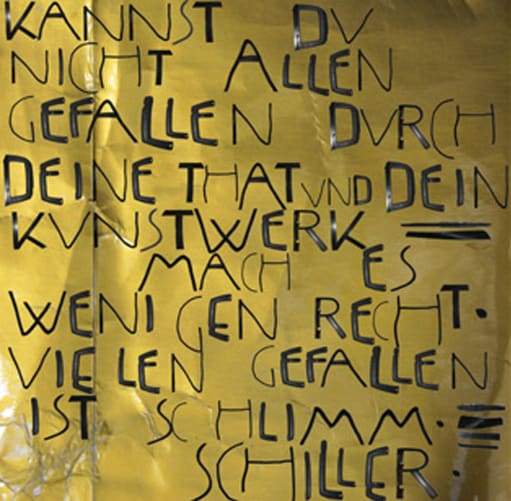 KANNST DV
NICHT ALLEN
GEFALLEN DVRCH
DEINE THAT VND DEIN
KVNSTWERK
MACH ES
WENIGEN RECHT·
VIELEN GEFALLEN
IST SCHLIMM·
SCHILLER·